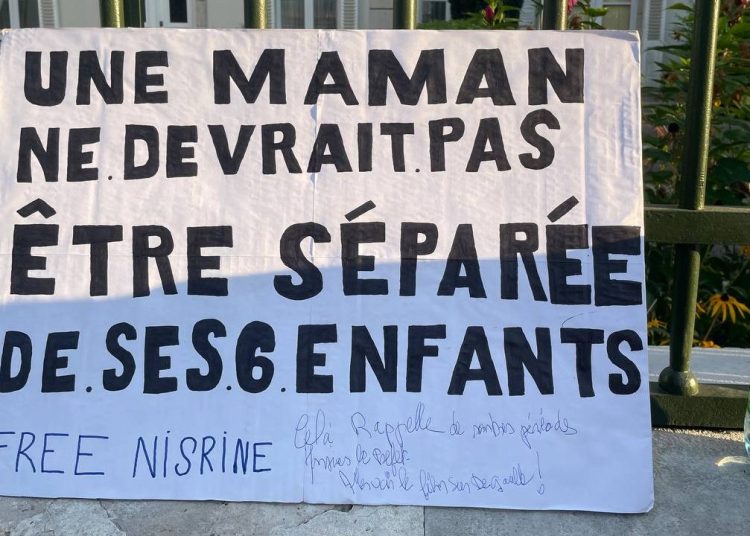 UNE MAMAN
NE.DEVRAIT.PAS
ÊTRE SÉPARÉE
DE.SES.6.ENFANTS
FREE NISRINE
Celà Rappelle de sombres périodes
le
le film sur !